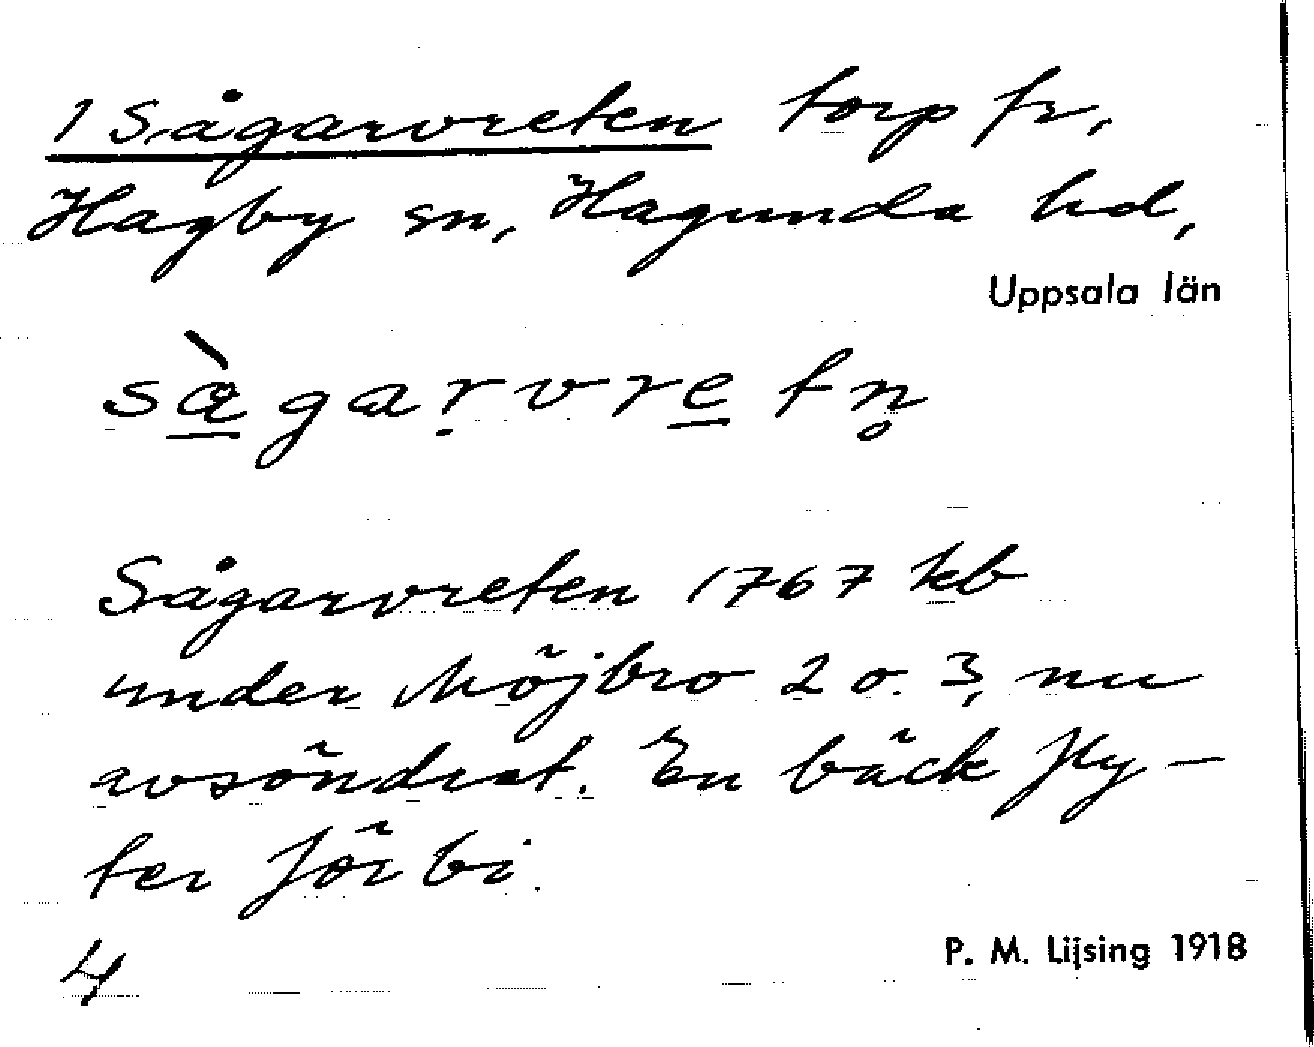 1 Sågarvreten torp fr,
Hagby sn, Hagunda hd,
Uppsala län
sàgaṛvretn̥
Sågarvreten 1767 kb
under Möjbro 2 o. 3, nu
avsöndrat. En bäck fly-
ter förbi.
4
P. M. Lijsing 1918